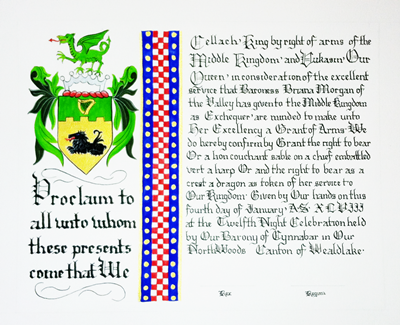 Proclaim to
all unto whom
these presents
come that We
Cellach King by right of arms of the
Middle Kingdom and Vukasin Our
Queen in consideration of the excellent
service that Baroness Briana Morgan of
the Valley has given to the Middle Kingdom
as Exchequer are minded to make unto
Her Excellency a Grant of Arms We
do hereby confirm by Grant the right to bear
Or a lion couchant sable on a chief embattled
vert a harp Or and the right to bear as a
crest a dragon as token of her service to
Our Kingdom Given by Our hands on this
fourth day of January AS XLVIII
at the Twelfth Night Celebration held
by Our Barony of Cynnabar in Our
NorthWoods Canton of Wealdlake